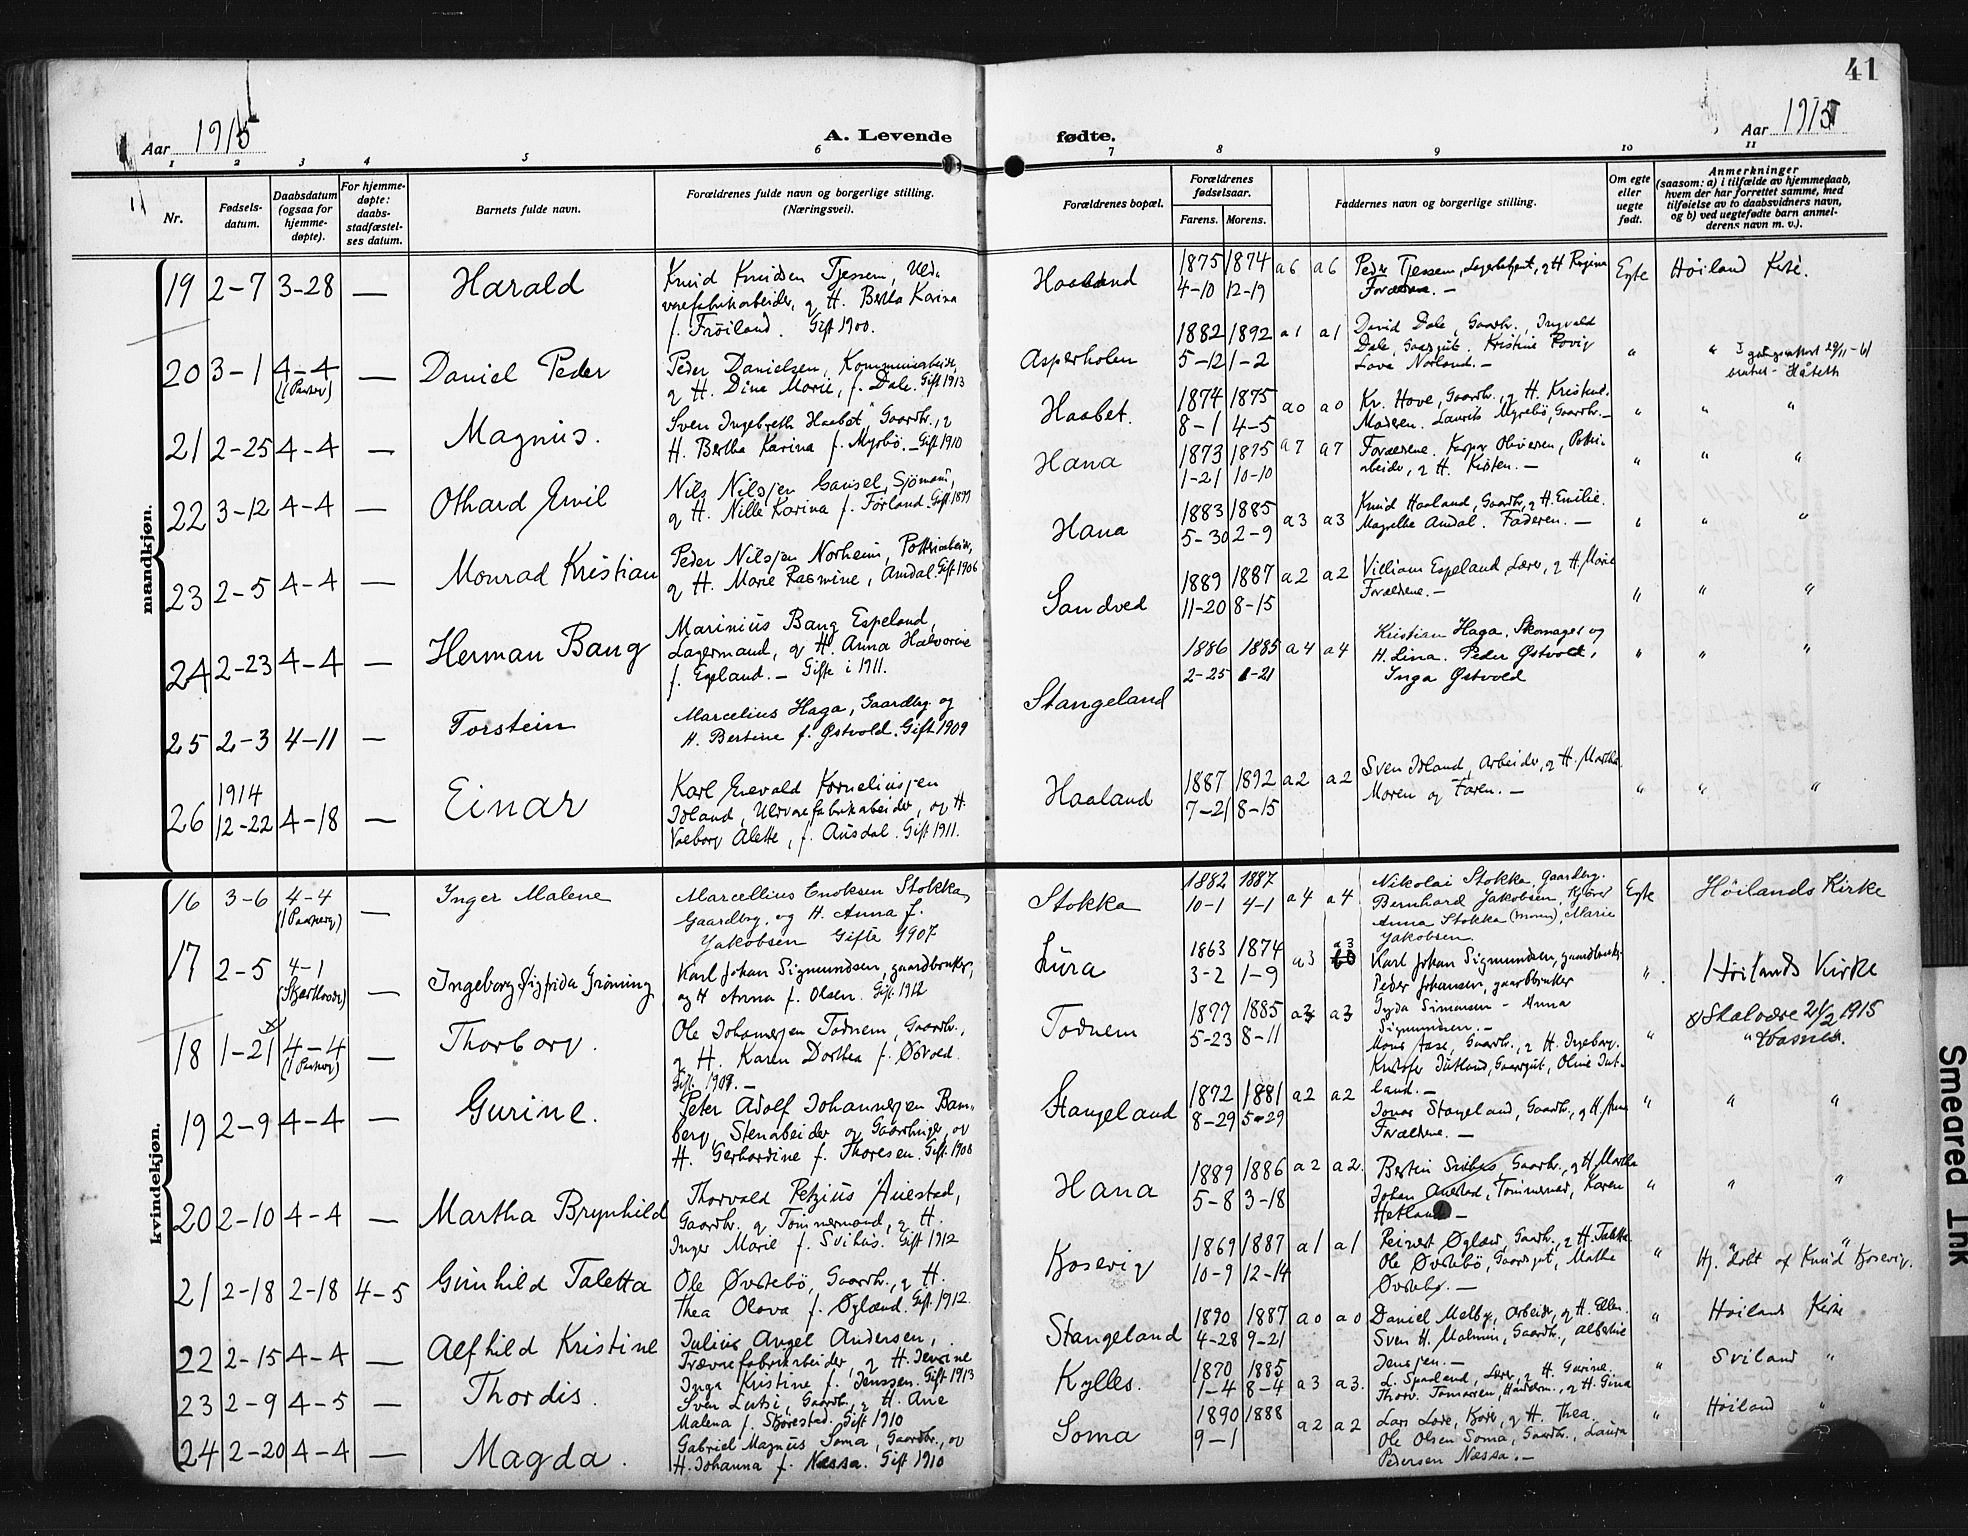 41
Aar 1915
A. Levende fødte.
Aar 1915
1 2 3 4 5 6 7 8 9 10 11
Nr.
Fødsels-
datum.
Daabsdatum
(ogsaa for
hjemme-
døpte).
For hjemme-
døpte:
daabs-
stadfæstel-
ses datum.
Barnets fulde navn.
Forældrenes fulde navn og borgerlige stilling.
(Næringsvei).
Forældrenes bopæl.
Forældrenes
fødselsaar.
Farens. Morens.
Faddernes navn og borgerlige stilling.
Om egte
eller
uegte
født.
Anmerkninger
(saasom: a) i tilfælde av hjemmedaab,
hvem der har forrettet samme, med
tilføielse av to daabsvidners navn,
og b) ved uegtefødte barn anmel-
derens navn m. v.).
mandkjøn.
19 2-7 3-28 — Harald
Knud Knudsen Tjessem, Uld-
varefabrikarbeider, og H. Bertha Karina
f. Frøiland. Gift 1900.
Haaland
1875 1874 a6 a6
4-10 12-19
Peder Tjessem, Lagerbetjent, og H Regina
Forældrene. —
Egte Høiland Kirke.
20 3-1 4-4 — Daniel Peder
Peder Danielsen, Kommunearbeider,
og H. Dina Marie, f. Dale. Gift 1913
Asperholen
1882 1892 a1 a1
5-12 1-2
David Dale, Gaardbr., Ingvald
Dale, Gaardgut. Kristine Rovig
Lava Norland. —
21 2-25 4-4 — Magnus.
Sven Ingebreth Haabet, Gaardbr., og
H. Bertha Karina f. Myrbø. — Gift 1910
Haabet.
1874 1875 a0 a0
8-1 4-5
Kr. Hove, Gaardbr., og H. Kristine.
Moderen. Laurits Myrebø, Gaardbr. —
22 3-12 4-4 — Othard Emil
Nils Nilsjen Gausel, Sjømand,
og H. Nille Karina f. Førland. Gift 1899
Hana
1873 1875 a7 a7
1-21 10-10
Forældrene. Kasper Oliversen, Potteri-
arbeider, og H. Kirsten. —
23 2-5 4-4 — Monrad Kristian
Peder Nilsjen Norheim, Potteriarbeider,
og H. Marie Rasmine, Amdal. Gift 1906
Hana
1883 1885 a3 a3
5-30 2-9
Knud Haaland, Gaardbr., og H. Emilie.
Magnilie Amdal. Faderen. —
24 2-23 4-4 — Herman Bang
Marinius Bang Espeland,
Lagermand, og H. Anna Halvorine
f. Egeland. — Gifte i 1911.
Sandved
1889 1887 a2 a2
11-20 8-15
Villiam Espeland, Lærer, og H. Marie
Forældrene. —
25 2-3 4-11 — Torstein
Marcelius Haga, Gaardbrg. og
H. Bertine f. Østvold. Gift 1909
Stangeland
1886 1885 a4 a4
2-25 1-21
Kristian Haga, Skomager og
H. Lina. Peder Østvold,
Inga Østvold
26 1914
12-22 4-18 — Einar
Karl Enevald Korneliusjen
Joland, Uldvarefabrikarbeider, og H.
Valborg Alette, f. Ausdal. Gift 1911.
Haaland
1887 1892 a2 a2
7-21 8-15
Sven Joland, Arbeider, og H. Martha
Moren og Faren. —
kvindekjøn.
16 3-6 4-4 — Inger Malene
Marcellius Enoksen Stokka,
Gaardbrg. og H. Anna f.
Jakobsen Gifte 1907
Stokka
1882 1887 a4 a4
10-1 4-1
Nikolai Stokka, Gaardbrg.
Bernhard Jakobsen, Kjører
Anna Stokka (moren), Marie
Jakobsen
Egte Høilands Kirke
17 2-5 4-1
(Skjærtorsd) — Ingeborg Sigfrida Grønning
Karl Johan Sigmundsen, gaardbruker,
og H Anna f. Olsen. Gift 1912
Lura
1863 1874 a3 a3
3-2 1-9
Karl Johan Sigmundsen, gaardbruker
Peder Johansen, gaardbruker
Gyda Simonsen - Anna
Sigmundsen. —
Høilands Kirke
18 1-21 4-4 — Thorborg.
Ole Johannesjen Todnem, Gaardbr.,
og H. Karen Dorthea f. Østvold.
Gift 1909. —
Todnem
1877 1885 a3 a3
5-23 8-11
Mons Aase, Gaardbr., og H. Ingeborg.
Kristofer Jutland, Gaardgut, Oline Jut-
land. —
Skalvære 21/2 1915
19 2-9 4-4 — Gurine.
Peter Adolf Johannesjen Bam-
berg, Stenarbeider og Gaardbruger, og
H. Gerhardine f. Thoresen. Gift 1900
Stangeland
1872 1881 a2 a2
8-29 5-29
Jonas Stangeland, Gaardbr., og H Anna
Forældrene. —
20 2-10 4-4 — Martha Brynhild
Thorvald Petzius Auestad,
Gaardbr. og Tømmermand, og H.
Inger Marie f. Svihus. Gift 1912
Hana
1889 1886 a2 a2.
5-8 3-18
Bertin Svihus, Gaardbr., og H Martha
Johan Auestad, Tømmermd, Karen
Hetland —
21 2-18 2-18 4-5 Gunhild Taletta
Ole Øvstebø, Gaardbr., og H.
Thea Olava f. Øglænd. Gift. 1912.
Kjosevig
1869 1887 a1 a1
10-9 12-14
Reinert Øglænd, Gaardbr., og H. Taletta.
Ole Øvstebø, Gaardgut, Malla
Øvstebø. —
Hj. døbt af Knud Kjosevig.
22 2-15 4-4 — Alfhild Kristine
Julius Angel Andersen,
Trævarefabrikarbeider, og H. Jensine
Inga Kristine f. Jenssen. Gift 1913
Stangeland
1890 1887 a0 a0
4-28 9-21
Daniel Melby, Arbeider, og H. Ellen.
Sven H. Malmin, Gaardbr., Albertine
Jensjen. —
Høiland Kirke
23 2-9 4-5 — Thordis.
Sven Lutsi, Gaardbr., og H. Ane
Malena f. Skjørestad. Gift 1910
Kylles.
1870 1885 a3 a3.
1-4 8-4
L. Spødland, Lærer, og H. Gurine.
Thorv. Tomasen, Handelsm., og H. Gina
Sviland "
24 2-20 4-4 — Magda.
Gabriel Magnus Soma, Gaardbr., og
H. Johanna f. Næssa. Gift 1910
Soma
1890 1888 a2 a2
9-1
Lars Lore, Kjører, og H. Thea.
Ole Olsen Soma, Gaardbr., Laura
Pedersen Næssa. —
Høiland "
Smeared Ink